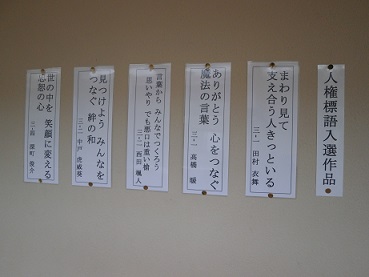 人権標語入選作品
まわり見て
支え合う人きっといる
三・一 田村 衣舞
ありがとう 心をつなぐ
魔法の言葉
三・一 高橋 暖
言葉から みんなでつくろう
思いやり でも悪口は重い槍
三・一 西田 颯人
見つけよう みんなを
つなぐ 絆の和
三・二 中戸 虎威
世の中を 笑顔に変える
心邪の心
深町 俊介